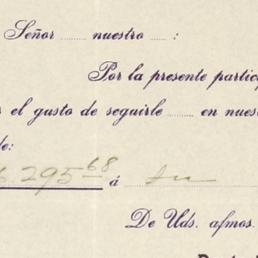 Señor ...... nuestro ...... :
Por la presente partici
el gusto de seguirle ...... en nues
de:
6.295 68 á su
De Uds. afmos.